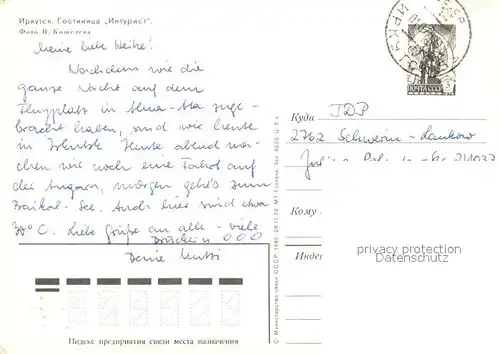 Иркутск. Гостиница „Интурист".
Фото Н. Кошелева
Meine liebe Heike!
Nachdem wir die
ganze Nacht auf dem
Flugplatz in Alma-Ata zuge-
bracht haben, sind wir heute
in Irkutsk. Heute abend ma-
chen wir noch eine Fahrt auf
der Angara, morgen geht's zum
Baikal-See. Auch hier sind etwa
30°C. Liebe Grüße an alle - viele
Drückerli 000
Deine Mutti
Индекс предприятия связи места назначения
ПОЧТА СССР
Куда DDR
2762 Schwerin-Lankow
Кому
privacy protection
Datenschutz
© Министерство связи СССР. 1980